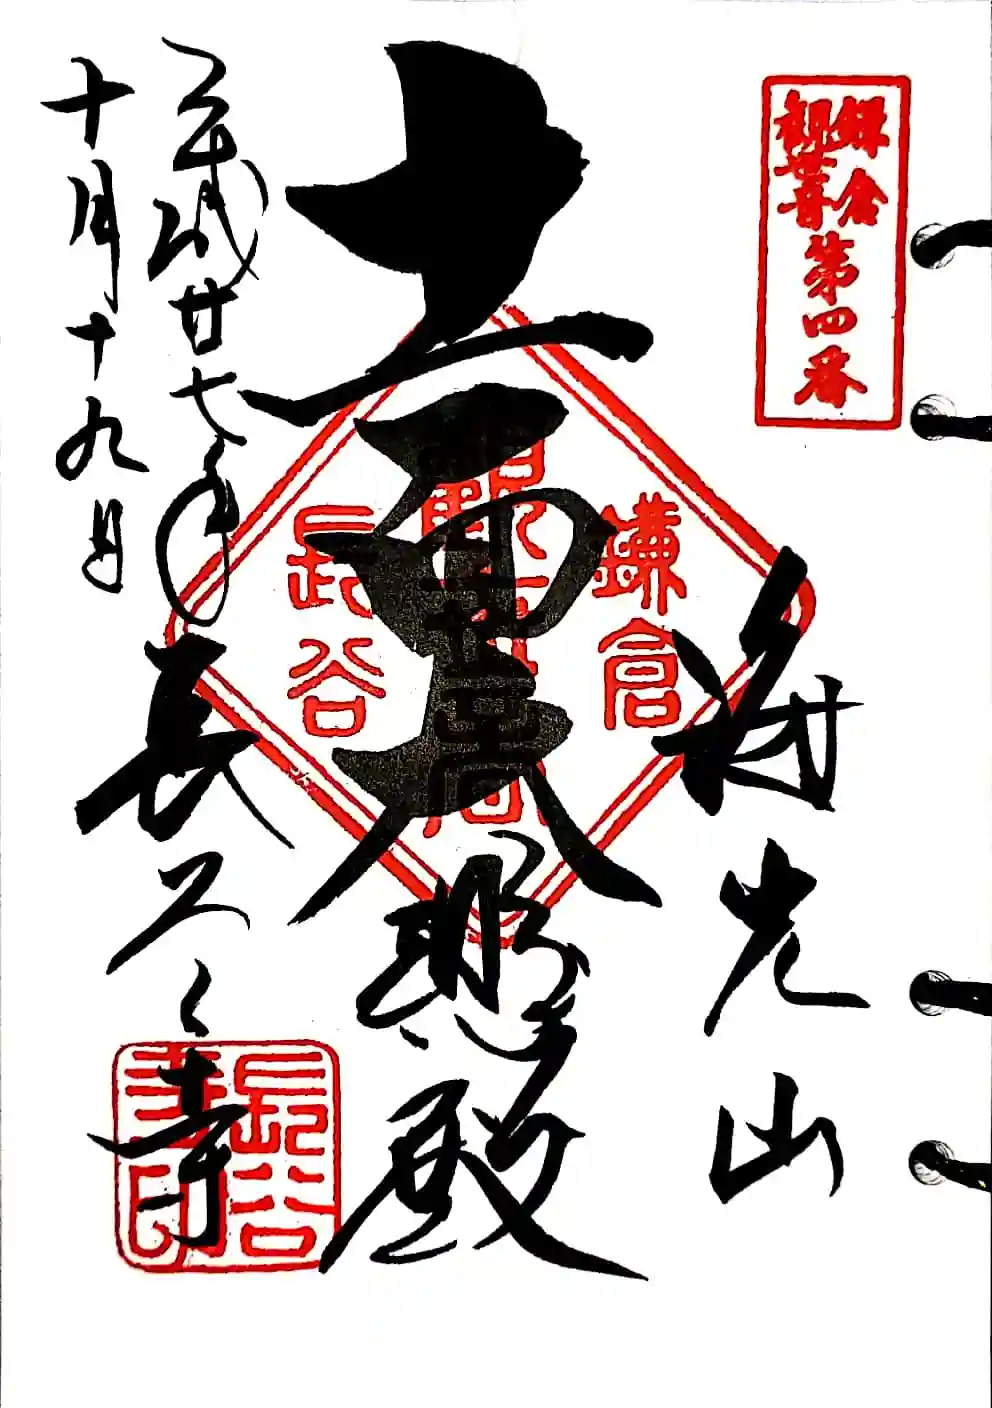 鎌倉
観世音
第四番
海光山
十一面大悲殿
鎌倉
長谷
平成廿七年
十月十九日
長谷寺
長谷
寺印